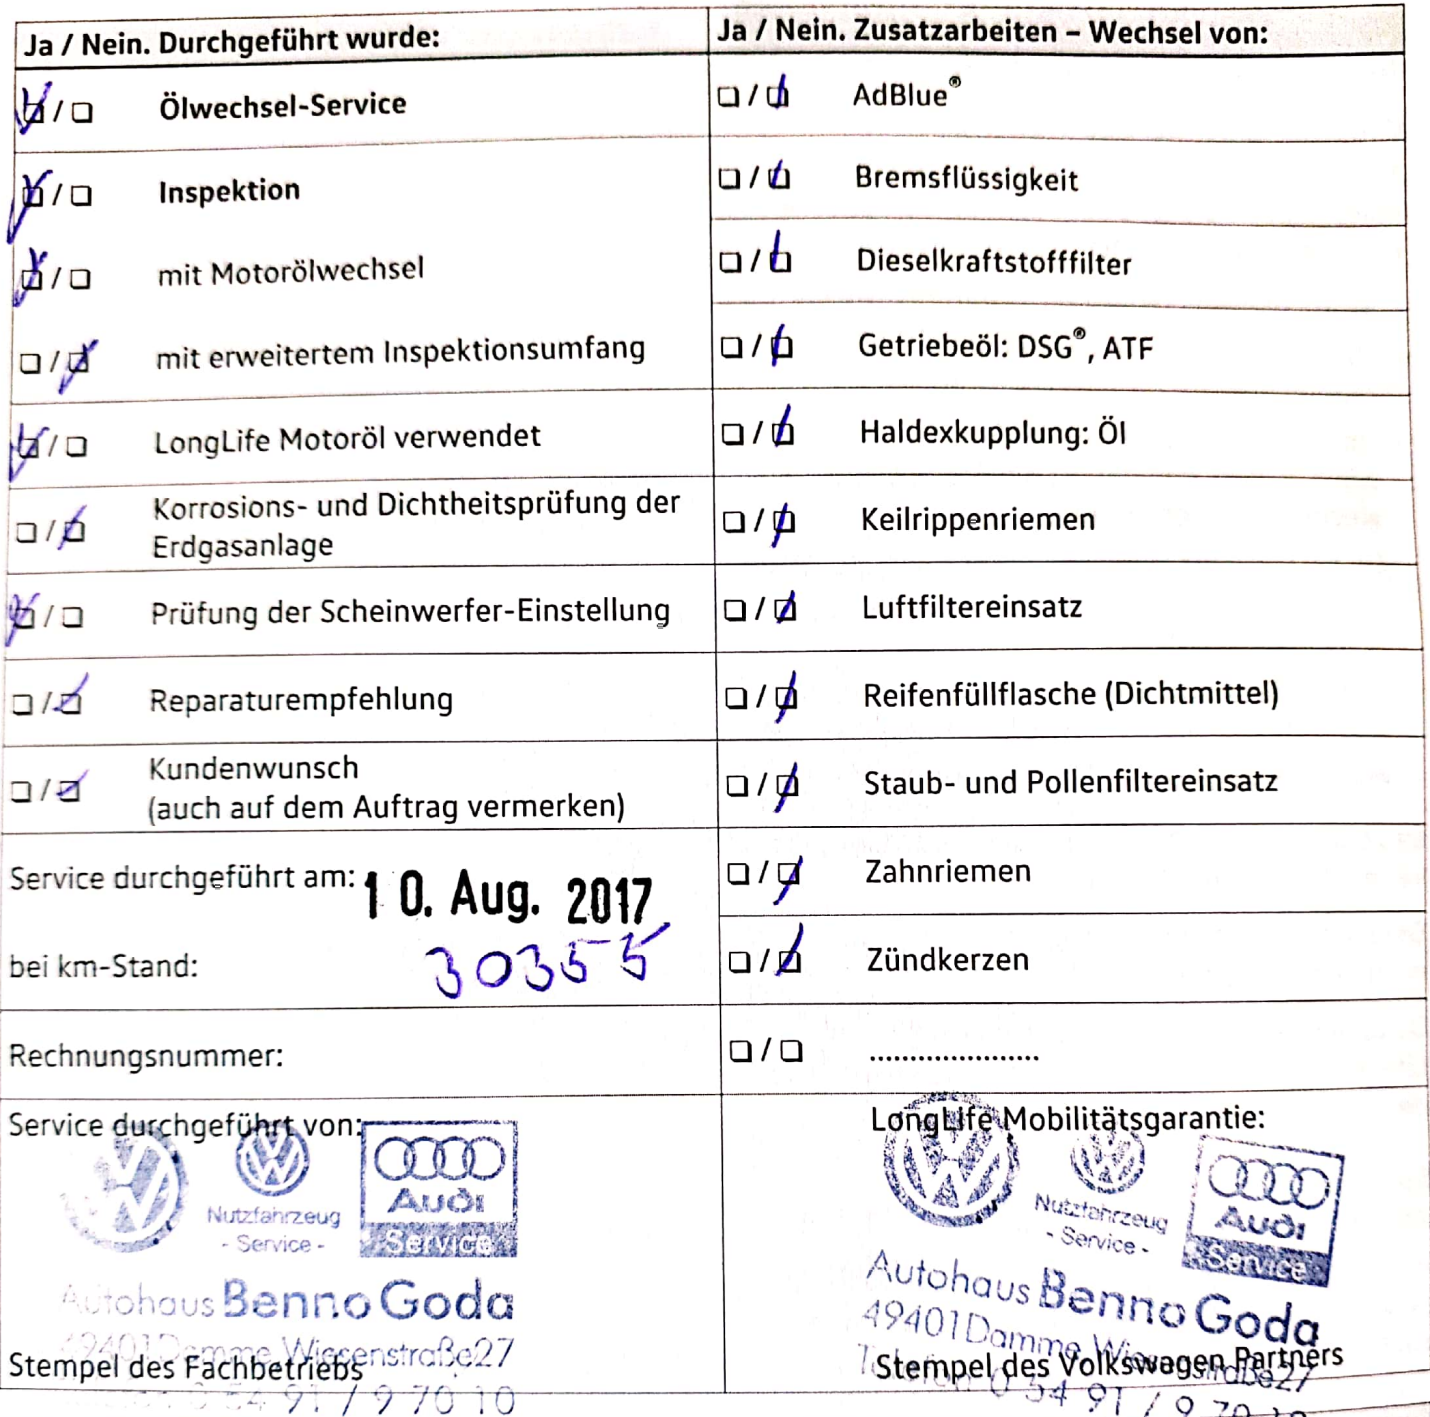 Ja / Nein. Durchgeführt wurde:
☑ / ☐ Ölwechsel-Service
☑ / ☐ Inspektion
☑ / ☐ mit Motorölwechsel
☐ / ☑ mit erweitertem Inspektionsumfang
☑ / ☐ LongLife Motoröl verwendet
☐ / ☑ Korrosions- und Dichtheitsprüfung der
Erdgasanlage
☑ / ☐ Prüfung der Scheinwerfer-Einstellung
☐ / ☑ Reparaturempfehlung
☐ / ☑ Kundenwunsch
(auch auf dem Auftrag vermerken)
Service durchgeführt am: 10. Aug. 2017
bei km-Stand: 30355
Rechnungsnummer:
Service durchgeführt von:
Nutzfahrzeug
- Service -
Audi
Service
Autohaus Benno Goda
49401 Damme Wiesenstraße 27
Stempel des Fachbetriebs
0 54 91 / 9 70 10
Ja / Nein. Zusatzarbeiten – Wechsel von:
☐ / ☑ AdBlue®
☐ / ☑ Bremsflüssigkeit
☐ / ☑ Dieselkraftstofffilter
☐ / ☑ Getriebeöl: DSG®, ATF
☐ / ☑ Haldexkupplung: Öl
☐ / ☑ Keilrippenriemen
☐ / ☑ Luftfiltereinsatz
☐ / ☑ Reifenfüllflasche (Dichtmittel)
☐ / ☑ Staub- und Pollenfiltereinsatz
☐ / ☑ Zahnriemen
☐ / ☑ Zündkerzen
☐ / ☐ .....................
LongLife Mobilitätsgarantie:
Nutzfahrzeug
- Service -
Audi
Service
Autohaus Benno Goda
49401 Damme Wiesenstraße 27
Stempel des Volkswagen Partners
Telefon 0 54 91 / 9 70 10